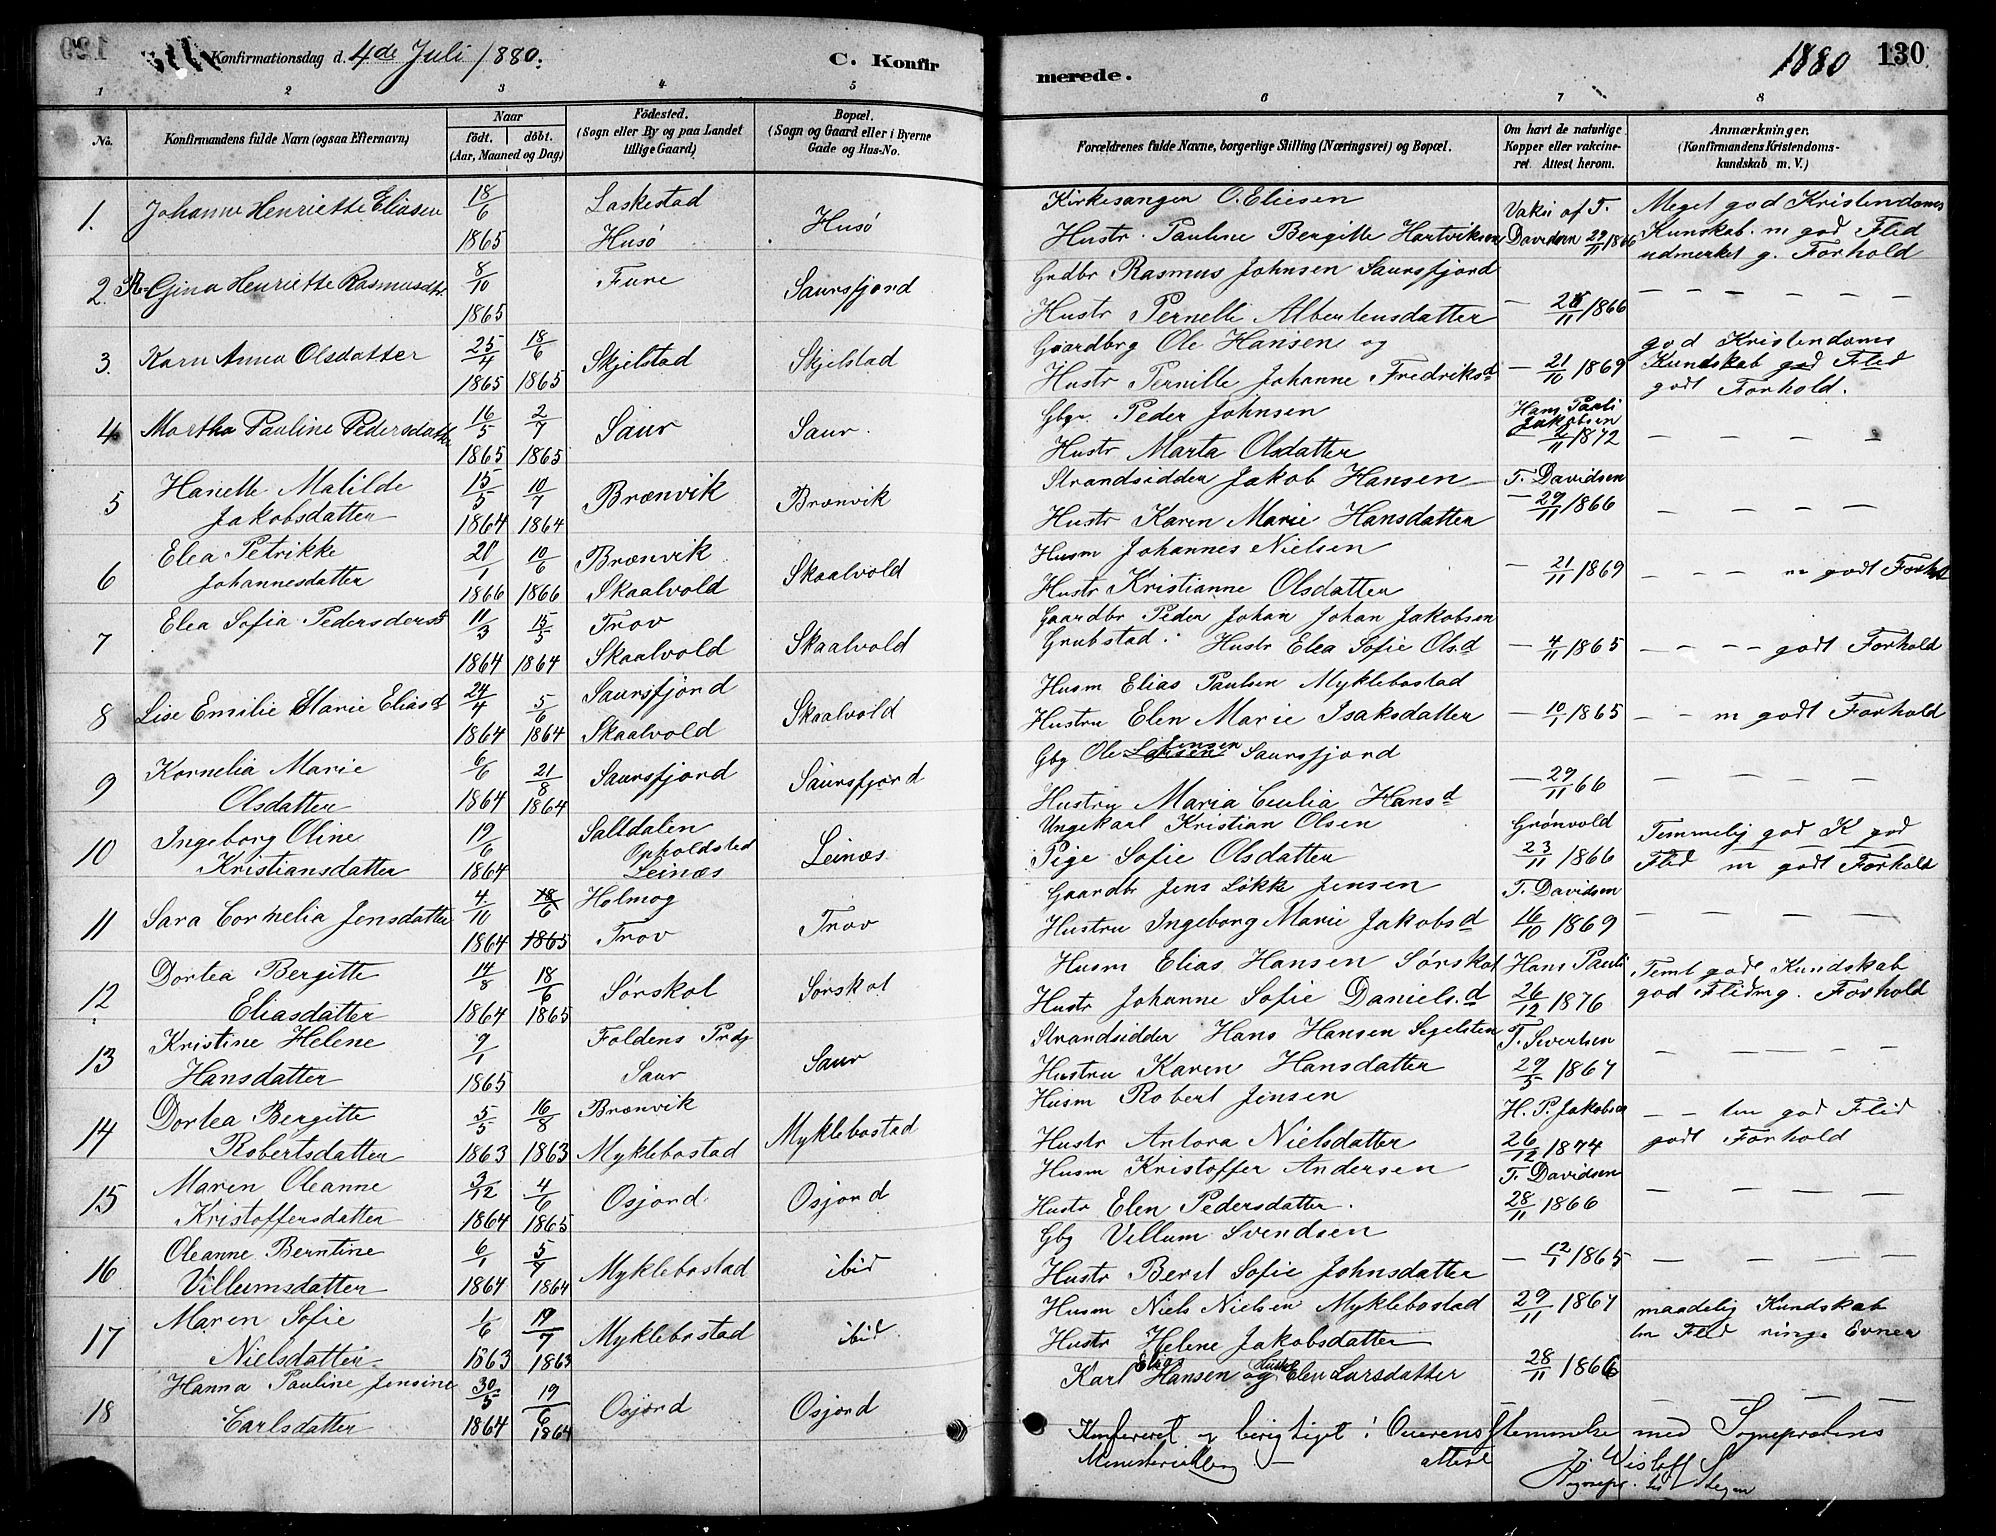 Konfirmationsdag d. 4de Juli 1880.
C. Konfir
merede.
1880
130
1 2 3 4 5 6 7 8
No.
Konfirmandens fulde Navn (ogsaa Efternavn)
Naar
födt. döbt.
(Aar, Maaned og Dag)
Födested.
(Sogn eller By og paa Landet
tillige Gaard)
Bopæl.
(Sogn og Gaard eller i Byerne
Gade og Hus-No.
Forældrenes fulde Navne, borgerlige Stilling (Næringsvei) og Bopæl.
Om havt de naturlige
Kopper eller vakcine-
ret. Attest herom.
Anmærkninger.
(Konfirmandens Kristendoms-
kundskab m. V.)
1. Johanne Henriette Eliesen 18/6 1865 Laskestad Husø Husø
Kirkesanger O. Eliesen
Hustr. Pauline Bergitte Hartviksen
Vaksi af T. Davidsen 29/11 1866
Meget god Kristendoms
Kunskab. m god Flid
udmerket g. Forhold
2. Gina Henriette Rasmusdtr. 8/10 1865 Fure Saursfjord
Grdbr Rasmus Johnsen Saursfjord
Hustr Pernelle Albertensdatter
— 28/11 1866 — — — — — —
3. Karn Anna Olsdatter 25/4 1865 18/6 1865 Skjelstad Skjelstad
Gaardbrg Ole Hansen og
Hustr Pernille Johanne Fredriksd
— 21/10 1869
god Kristendoms
Kundskab god Flid
godt Forhold.
4 Martha Pauline Pedersdatter 16/5 1865 2/7 1865 Saur Saur.
Gbgr Peder Johnsen
Hustr Marta Olsdatter
Hans Pauli
Jakobsen
— 2/11 1872 — — — —
5 Hanette Matilde
Jakobsdatter 15/5 1864 10/7 1864 Brænvik Brænvik
Strandsidder Jakob Hansen
Hustr Karen Marie Hansdatter
T. Davidsen
— 29/11 1866 — — — —
6 Elea Petrikke
Johannesdatter 21/1 1866 10/6 1866 Brænvik
Skaalvold Skaalvold
Husm Johannes Nielsen
Hustr Kristianne Olsdatter
— 21/11 1869 — — — m godt Forhold
7 Elea Sofia Pedersders 11/3 1864 15/5 1864 Trov
Skaalvold Skaalvold
Gaardbr Peder Johan Johan Jakobsen
Grubstad. Hustr Elea Sofie Olsd
— 4/11 1865 — — — — godt Forhold
8 Lise Emilie Marie Eliasd 24/4 1864 5/6 1864 Saursfjord
Skaalvold Skaalvold
Husm Elias Paulsen Myklebostad
Hustru Elen Marie Isaksdatter
— 10/1 1865 — — m godt Forhold
9 Kornelia Marie
Olsdatter 6/6 1864 21/8 1864 Saursfjord Saursfjord
Gbg Ole Larsen Jensen Saursfjord
Hustru Maria Cecilia Hansd
— 29/11 66 — — — —
10 Ingeborg Oline
Kristiansdatter 19/6 1864 Saltdalen
Opholdsted
Leinæs Leinæs
Ungekarl Kristian Olsen
Pige Sofie Olsdatter
Grønvold
23/11 1866
Temmelig god K god
Flid m godt Forhold
11 Sara Cornelia Jensdatter 4/10 1864 18/6 1865 Holmog
Trov Trov
Gaardbr Jens Løkke Jensen
Hustru Ingeborg Marie Jakobsd
T. Davidsen
16/10 1869 — — — —
12 Dortea Bergitte
Eliasdatter 14/8 1864 18/6 1865 Sørskot Sørskot
Husm Elias Hansen Sørskot
Hustr Johanne Sofie Daniels.d
Hans Pauli
26/12 1876
Temt godt Kundskab
god Flid mg. Forhold
13 Kristine Helene
Hansdatter 7/1 1865 Foldens Prdg
Saur Saur
Strandsidder Hans Hansen Segelsten
Hustru Karen Hansdatter
T. Sivertsen
29/5 1867 — — — — —
14 Dortea Bergitte
Robertsdatter 5/5 1863 16/8 1863 Brænvik
Myklebostad Myklebostad
Husm Robert Jensen
Hustr Antora Nielsdatter
H. P. Jakobsen
26/12 1874
— — tm god Flid
godt Forhold
15 Maren Oleanne
Kristoffersdatter 3/12 1864 4/6 1865 Osjord Osjord
Husm Kristoffer Andersen
Hustr Elen Pedersdatter.
T. Davidsen
28/11 1866 — — — —
16 Oleanne Berntine
Villumsdatter 6/1 1864 5/7 1864 Myklebostad ibid
Gbg Villum Svendsen
Hustr Berit Sofie Johnsdatter
— 12/1 1865 — — — — —
17 Maren Sofie
Nielsdatter 1/6 1863 19/7 1863 Myklebostad ibid.
Husm Niels Nielsen Myklebostad
Hustr Helene Jakobsdatter
29/11 1867
maadelig Kundskab
tm Flid ringe Evner
18 Hanna Pauline Jensine
Carlsdatter 30/5 1864 19/6 1864 Osjord Osjord
Karl Elias Hansen og Hustr Elen Larsdatter
28/11 1866 — — —
Konfereret og berigtiget i Overensstemmelse med Sogneprestens
Ministerialbog — attest
Wisløff
Sognepr. til Stegen